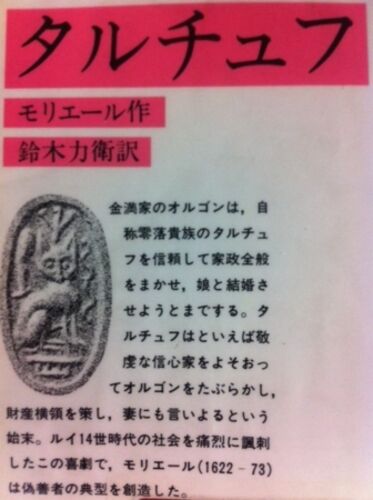 タルチュフ
モリエール作
鈴木力衛訳
金満家のオルゴンは，自
称零落貴族のタルチュ
フを信頼して家政全般
をまかせ，娘と結婚さ
せようとまでする。タ
ルチュフはといえば敬
虔な信心家をよそおっ
てオルゴンをたぶらかし，
財産横領を策し，妻にも言いよるという
始末。ルイ14世時代の社会を痛烈に諷刺
したこの喜劇で，モリエール(1622–73)
は偽善者の典型を創造した。